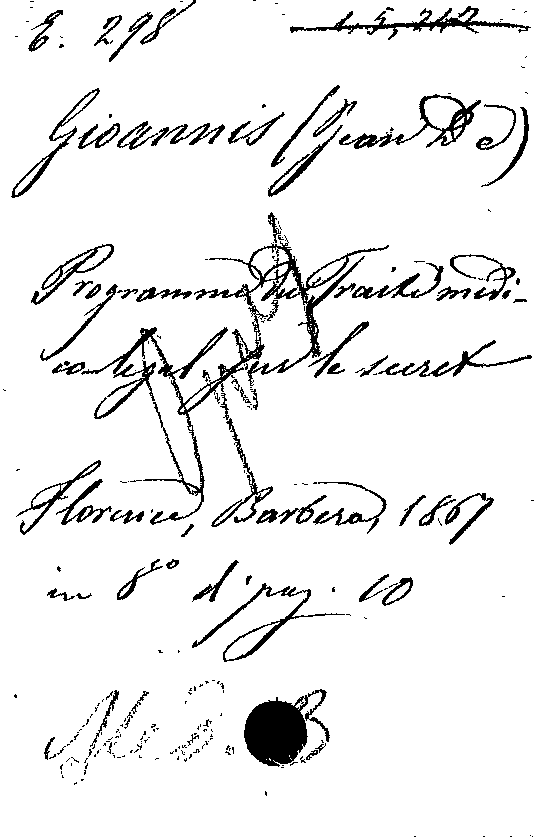 E. 298 1, 5, 212
Gioannis (Jean De)
Programme du Traité medi-
co-legal sur le secret
Florence, Barbera, 1867
in 8^co d' pag. 10
Med. B